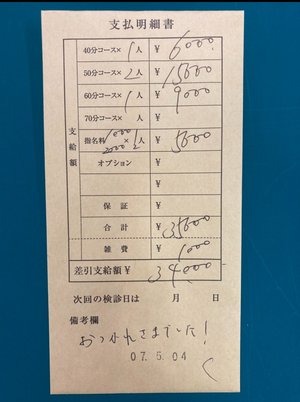 支払明細書
支給額
40分コース× 1人 ¥ 6000
50分コース× 2人 ¥ 15000
60分コース× 1人 ¥ 9000
70分コース× 人 ¥
指名料 1000 × 1人 ¥ 5000
2000 2
オプション ¥
¥
保証 ¥
合計 ¥ 35000
雑費 ¥ 1000
差引支給額 ¥ 34000
次回の検診日は 月 日
備考欄
おつかれさまでした!
07.5.04